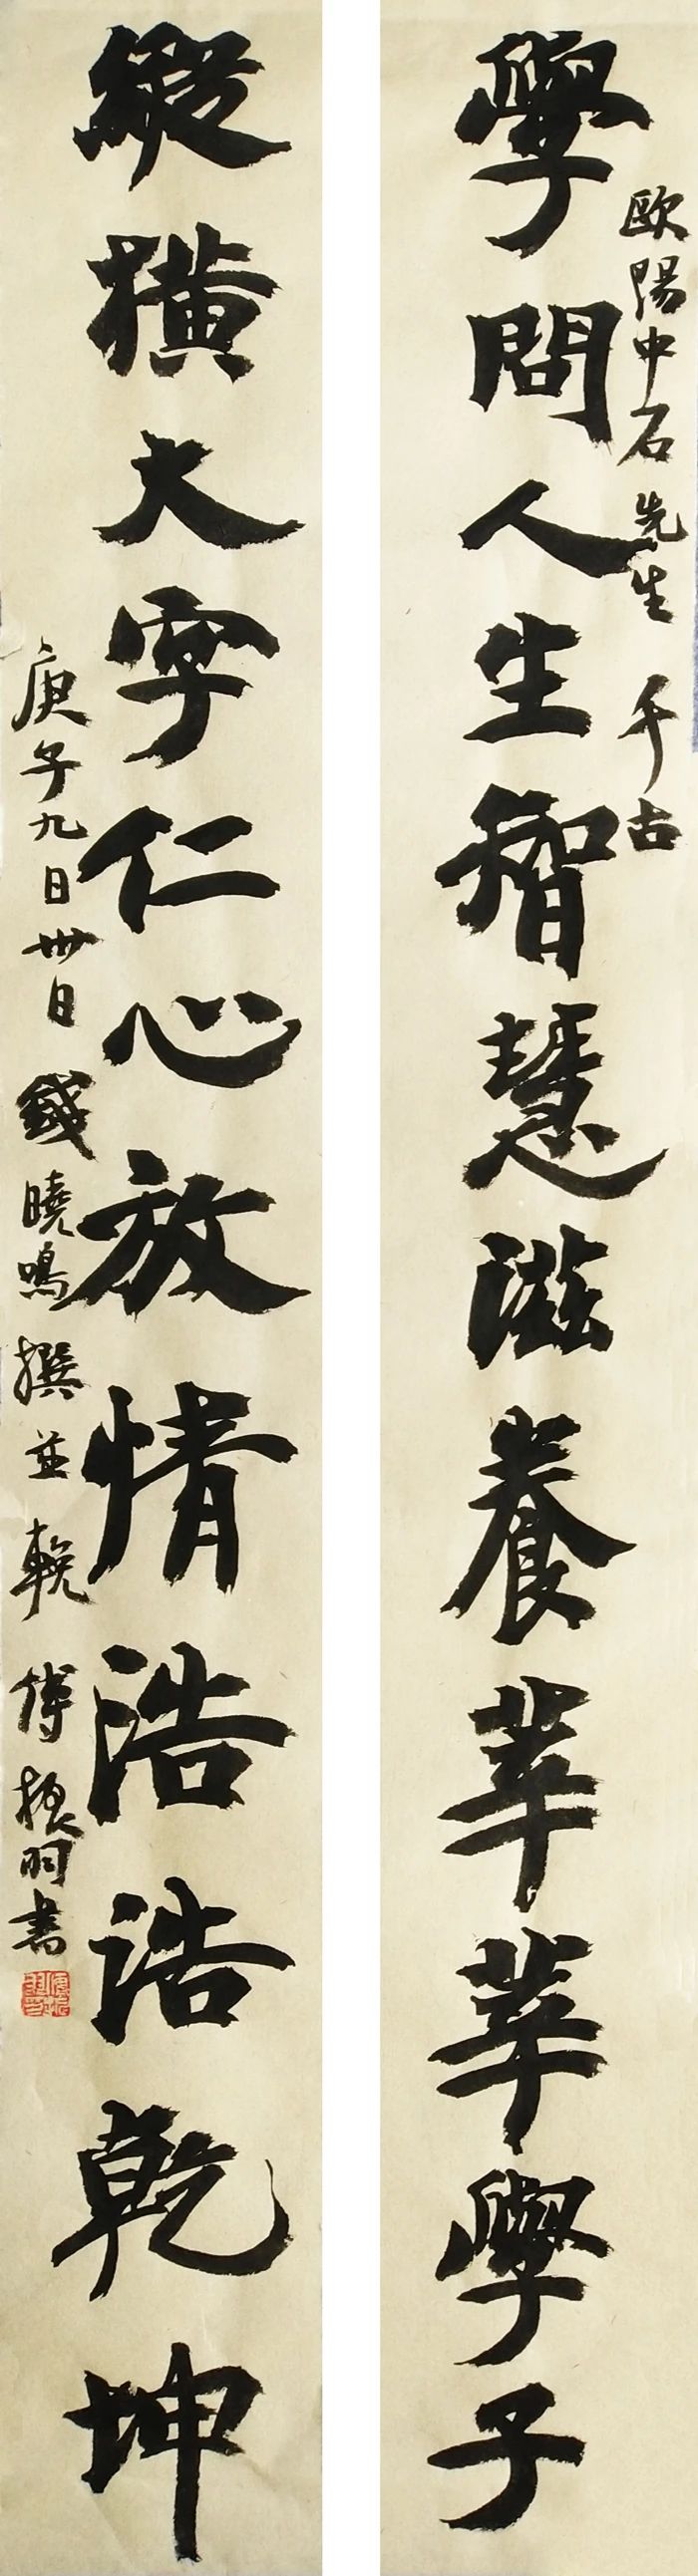 歐陽中石先生 千古
學問人生智慧滋養莘莘學子
縱橫大字仁心放情浩浩乾坤
庚子九日卅日 錢曉鳴 撰並輓 傅振羽書